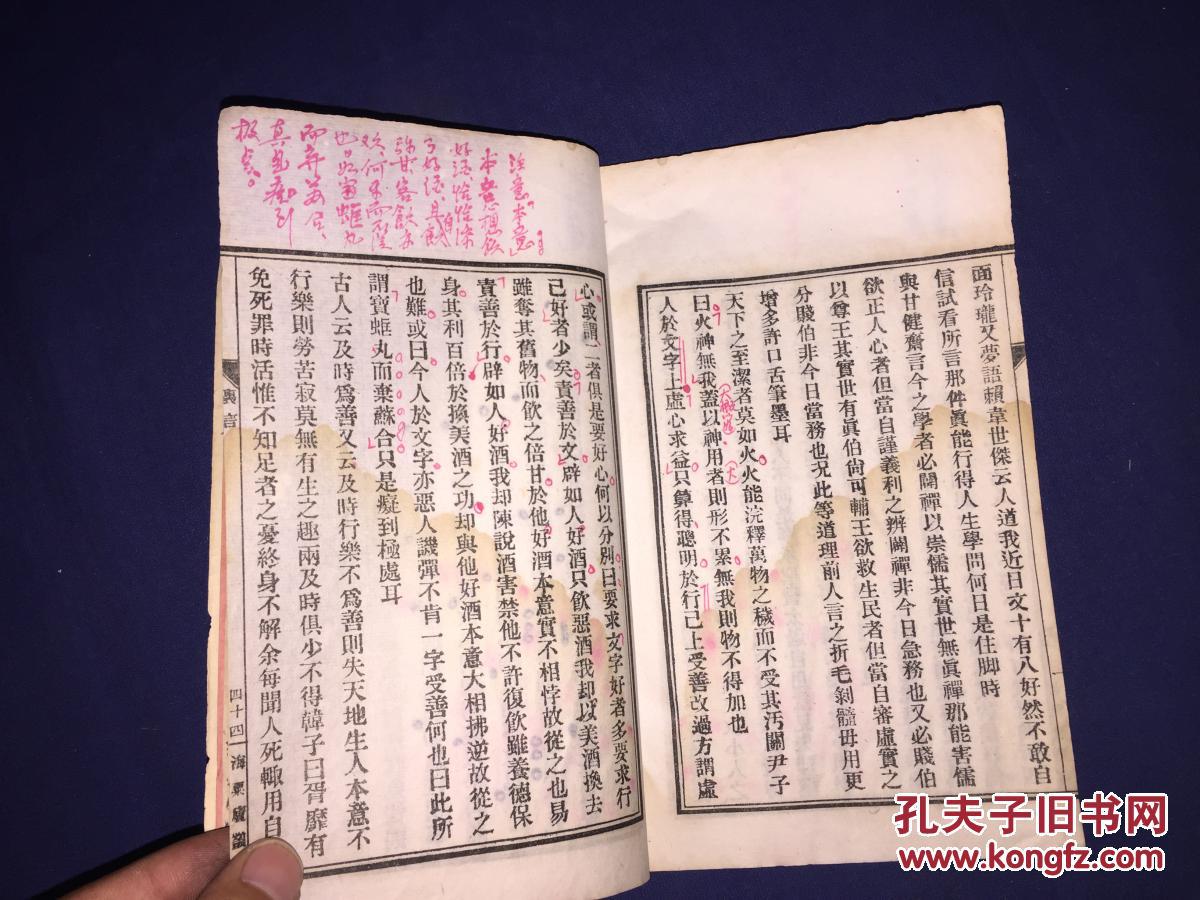 面玲瓏又夢語賴韋世傑云人道我近日文十有八好然不敢自
信試看所言那件眞能行得人生學問何日是住脚時
與甘健齋言今之學者必闢禪以崇儒其實世無眞禪那能害儒
欲正人心者但當自謹義利之辨闢禪非今日急務也又必賤伯
以尊王其實世有眞伯尙可輔王欲救生民者但當自審虛實之
分賤伯非今日當務也况此等道理前人言之折毛剝髓毋用更
增多許口舌筆墨耳
天下之至潔者莫如火火能浣釋萬物之穢而不受其汚關尹子
曰火神無我蓋以神用者則形不累無我則物不得加也
人於文字上虛心求益只算得聰明於行己上受善改過方謂虛
心或謂二者俱是要好心何以分別曰要求文字好者多要求行
己好者少矣責善於文辟如人好酒只飲惡酒我却以美酒換去
雖奪其舊物而飲之倍甘於他好酒本意實不相悖故從之也易
責善於行辟如人好酒我却陳說酒害禁他不許復飲雖養德保
身其利百倍於換美酒之功却與他好酒本意大相拂逆故從之
也難或曰今人於文字亦惡人譏彈不肯一字受善何也曰此所
謂寶蜣丸而棄蘇合只是癡到極處耳
古人云及時爲善又云及時行樂不爲善則失天地生人本意不
行樂則勞苦寂莫無有生之趣兩及時俱少不得韓子曰胥靡有
免死罪時活惟不知足者之憂終身不解余每聞人死輙用自
裏言
四十四
海
注意本意
本意想飲
好酒
也
極處。
孔夫子旧书网
www.kongfz.com